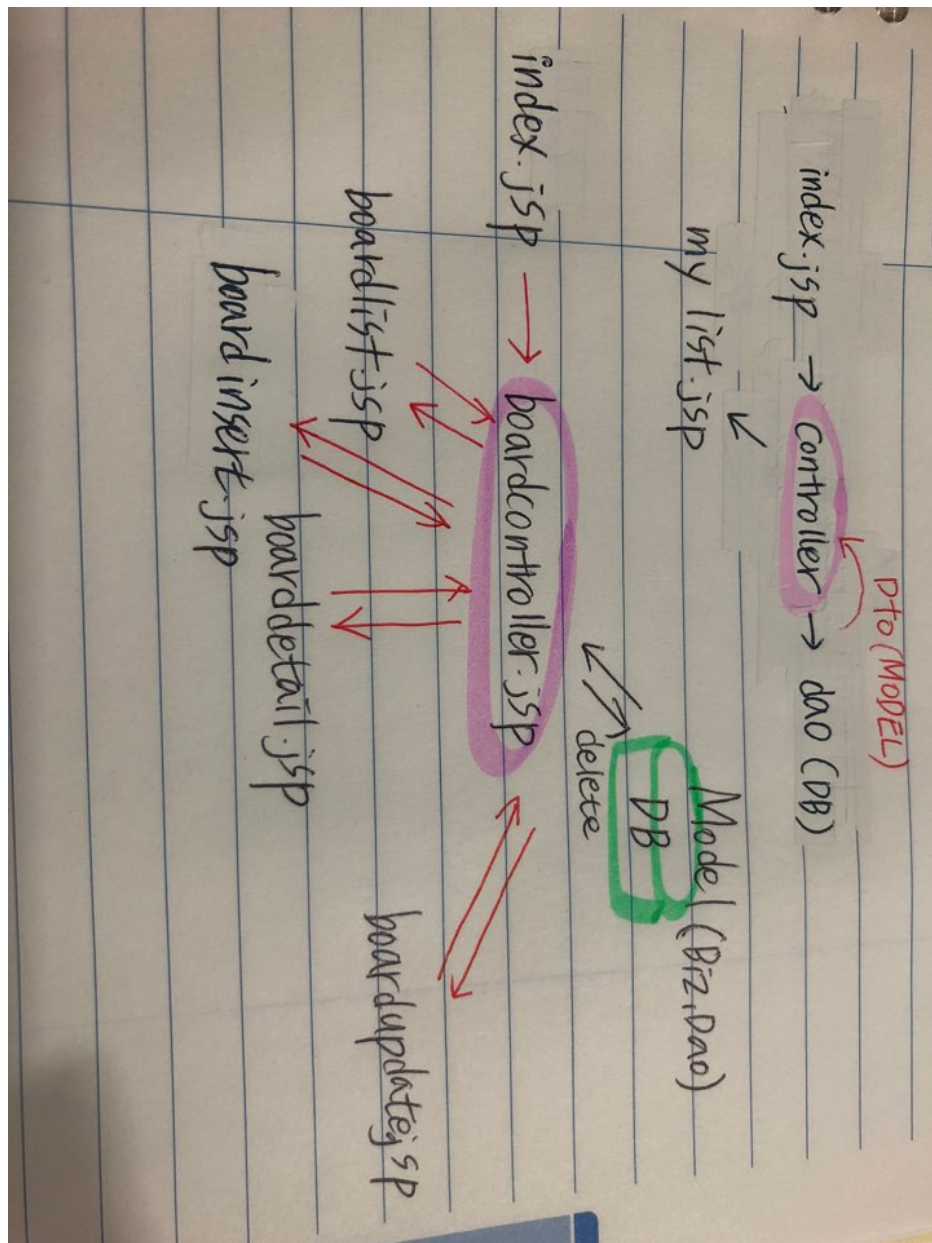 Dto (MODEL)
index.jsp → controller → dao (DB)
↙
my list.jsp
Model (Biz, Dao)
DB
delete
index.jsp → boardcontroller.jsp
boardlist.jsp
boardupdate.jsp
barddetail.jsp
board insert.jsp